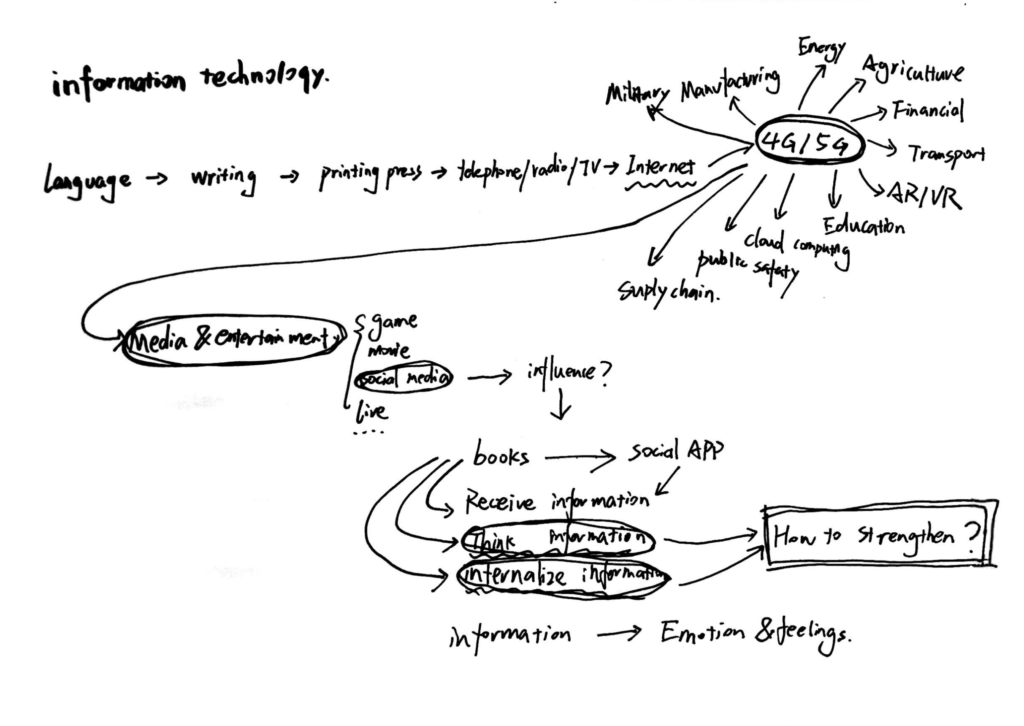 information technology.
Energy
Agriculture
Military
Manufacturing
Financial
4G/5G
Transport
Language → writing → printing press → telephone/radio/TV → Internet
AR/VR
Education
cloud computing
public safaty
Suply chain.
Media & entertainment
game
movie
social media → influence?
live
....
books → social APP
Receive information
Think information
How to strengthen?
internalize information
information → Emotion & feelings.